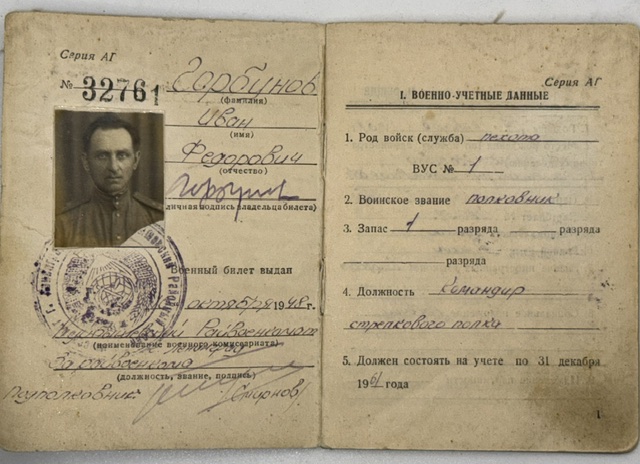 Серия АГ
№ 32761 Горбунов
(фамилия)
Иван
(имя)
Федорович
(отчество)
личная подпись владельца билета)
военный билет выдан
октября 1948 г.
Райвоенкомат
(наименование военного комиссариата)
(должность, звание, подпись)
подполковник Смирнов
Серия АГ
I. ВОЕННО-УЧЕТНЫЕ ДАННЫЕ
1. Род войск (служба) пехота
ВУС № 1
2. Воинское звание полковник
3. Запас 1 разряда разряда
разряда
4. Должность Командир
стрелкового полка
5. Должен состоять на учете по 31 декабря
1961 года
1